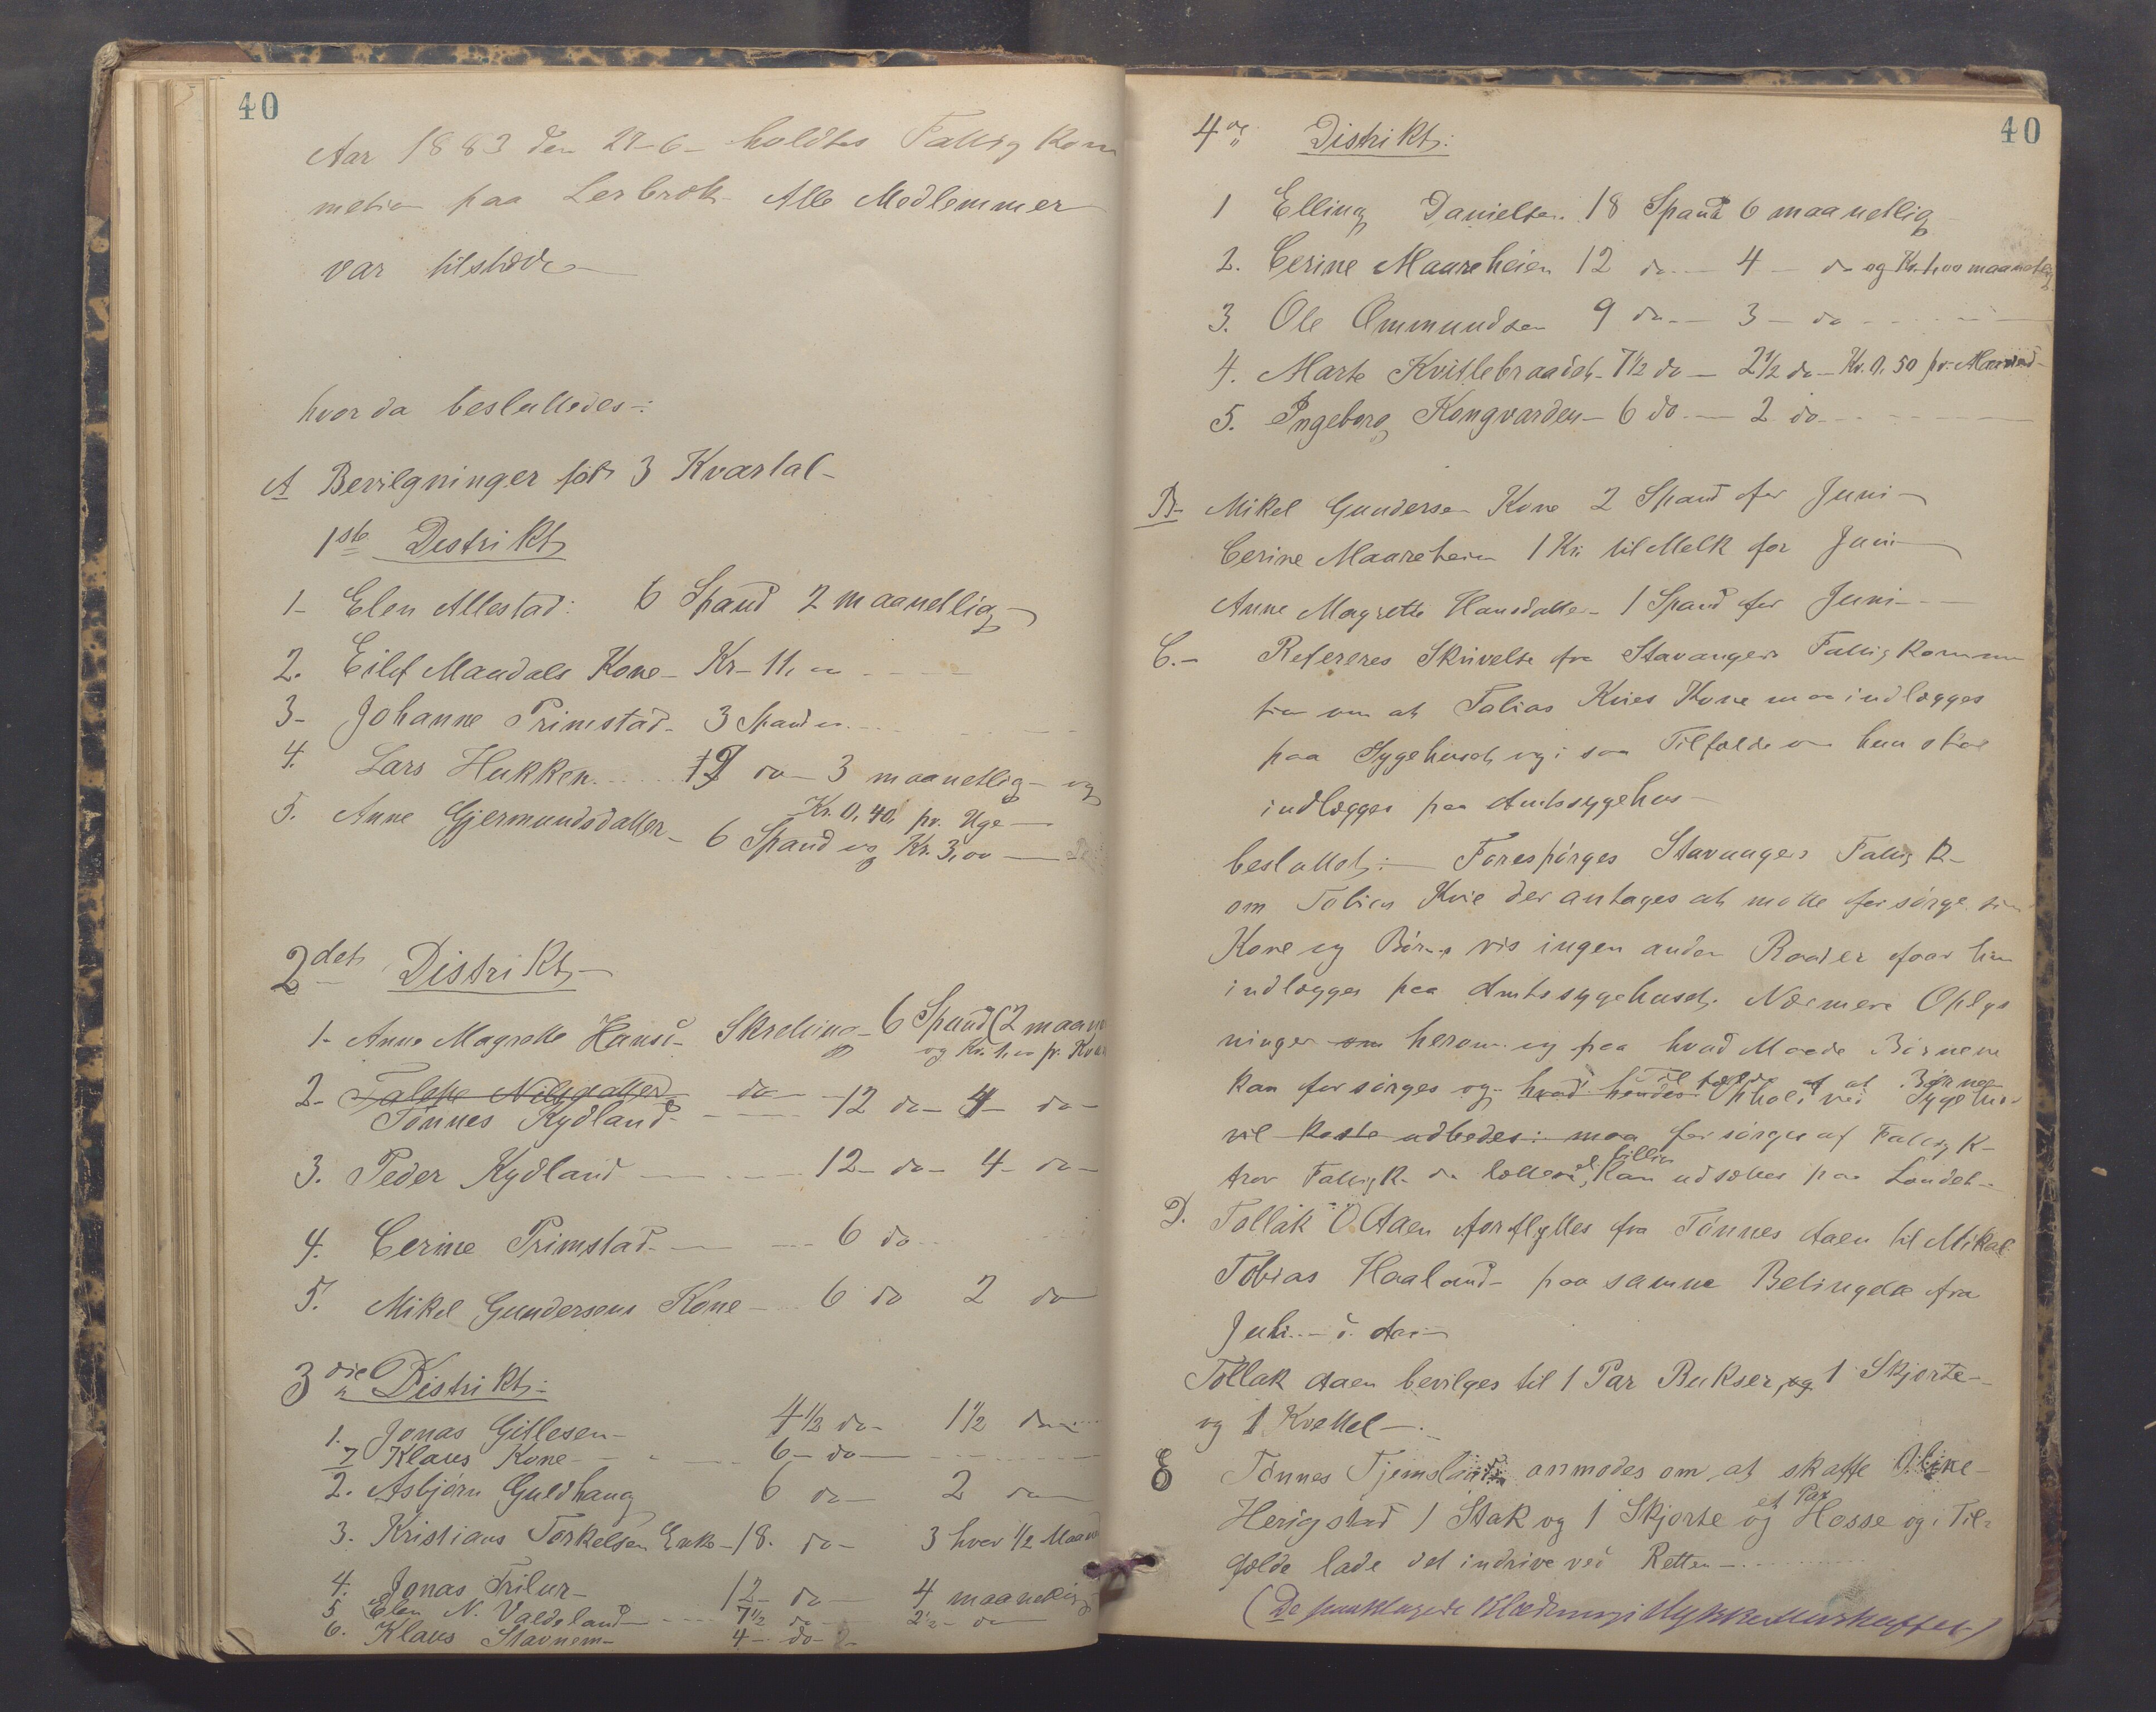 40
Aar 1883 den 27-6- holdtes Fattigkom
metion paa Lerbrek Alle Medlemmer
var tilstæde
hvor da besluttedes:
A Bevilgninger for 3 Kvartal-
1ste Destrikt
1- Elen Allestad: 6 Spand 2 maanetlig
2. Eilef Mandals Kone- Kr- 11,00
3- Johanne Primstad- 3 Spand
4. Lars Hukken 9 do- 3 maanetlig- og
Kr. 0,40 pr. Uge-
5. Anne Gjermundsdatter- 6 Spand og Kr. 3,00
2det Distrikt-
1- Anne Magrette Hansd- 6 Spand (2 maan
og Kr. 1,00 pr. Kvar
2- Talette Nilsdatter do
Tønnes Kydland- 12 do- 4- do-
3. Peder Kydland 12- do- 4- do-
4. Cerine Primstad- 6 do
5. Mikel Gundersens Kone- 6 do 2 do
3die Distrikt:
1. Jonas Gitlesen- 4 1/2 do- 1 1/2 do
7 Klaus Kone- 6- do
2. Asbjørn Guldhaug 6 do- 2 do
3. Kristians Torkelsen Enke- 18. do- 3 hver 1/2 Maan
4. Jonas Trilur- 12- do- 4 maanetlig
5 Elen N. Valdeland 7 1/2 do 2 1/2- do
6. Klaus Stavnem- 4- do-
40
4de Distrikt:
1 Elling Danielsen. 18 Spand 6 maanetlig
2. Cerine Maareheien 12 do- 4- do og Kr. 1,00 maanetlig
3. Ole Ommundsen 9 do- 3- do
4. Marte Kvitlebraadet- 7 1/2 do- 2 1/2 do- Kr. 0,50 pr. Maaned-
5. Ingeborg Kongvarden- 6 do- 2 do
B- Mikel Gundersen Kone 2 Spand for Juni-
Cerine Maareheien 1 Kr. til Melk for Juni
Anne Magrette Hansdatter- 1 Spand for Juni-
C.- Refereres Skrivelse fra Stavanger Fattigkommi
tion om at Tobias Kvies Kone maa indlægges
paa Sygehuset og i saa Tilfælde om hun skal
indlægges paa Amtssygehus-
besluttet:- Forespørges Stavanger Fattig K-
om Tobias Kvie der antages at matte forsørge sin
Kone og Børn vis ingen anden Raader faar hun
indlægges paa Amtssygehuset. Nærmere Oplys
ninger om herom og paa hvad Maade Børnene
kan forsørges og hvad hendes Ophold ved Sygehus
Tilfælde af at Børnene
vil koste udbedes: maa forsørges af Fattig K-
tror Fattig K- de lettere, el billi kan udsættes paa Landet-
D. Tollak O Aaen forflyttes fra Tønnes Aaen til Mikal
Tobias Haaland- paa samme Betingelse fra
Juli- d. Aar-
Tollak Aaen bevilges til 1 Par Bukser, og 1 Skjorte-
og 1 Kvettel-.
E Tønnes Tjemsland anmodes om at skaffe Oline
Herigstad 1 Stak og 1 Skjorte og et Par Hosse og i Til-
fælde lade det indrive ved Retten-